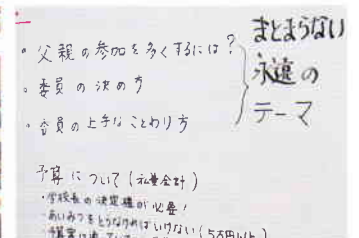 ・父親の参加を多くするには?
・委員の決め方
・委員の上手なことわり方
まとまらない
永遠の
テーマ
予算について(私費会計)
・学校長の決定権が必要!
・あいみつをとらなければいけない(5万円以上)